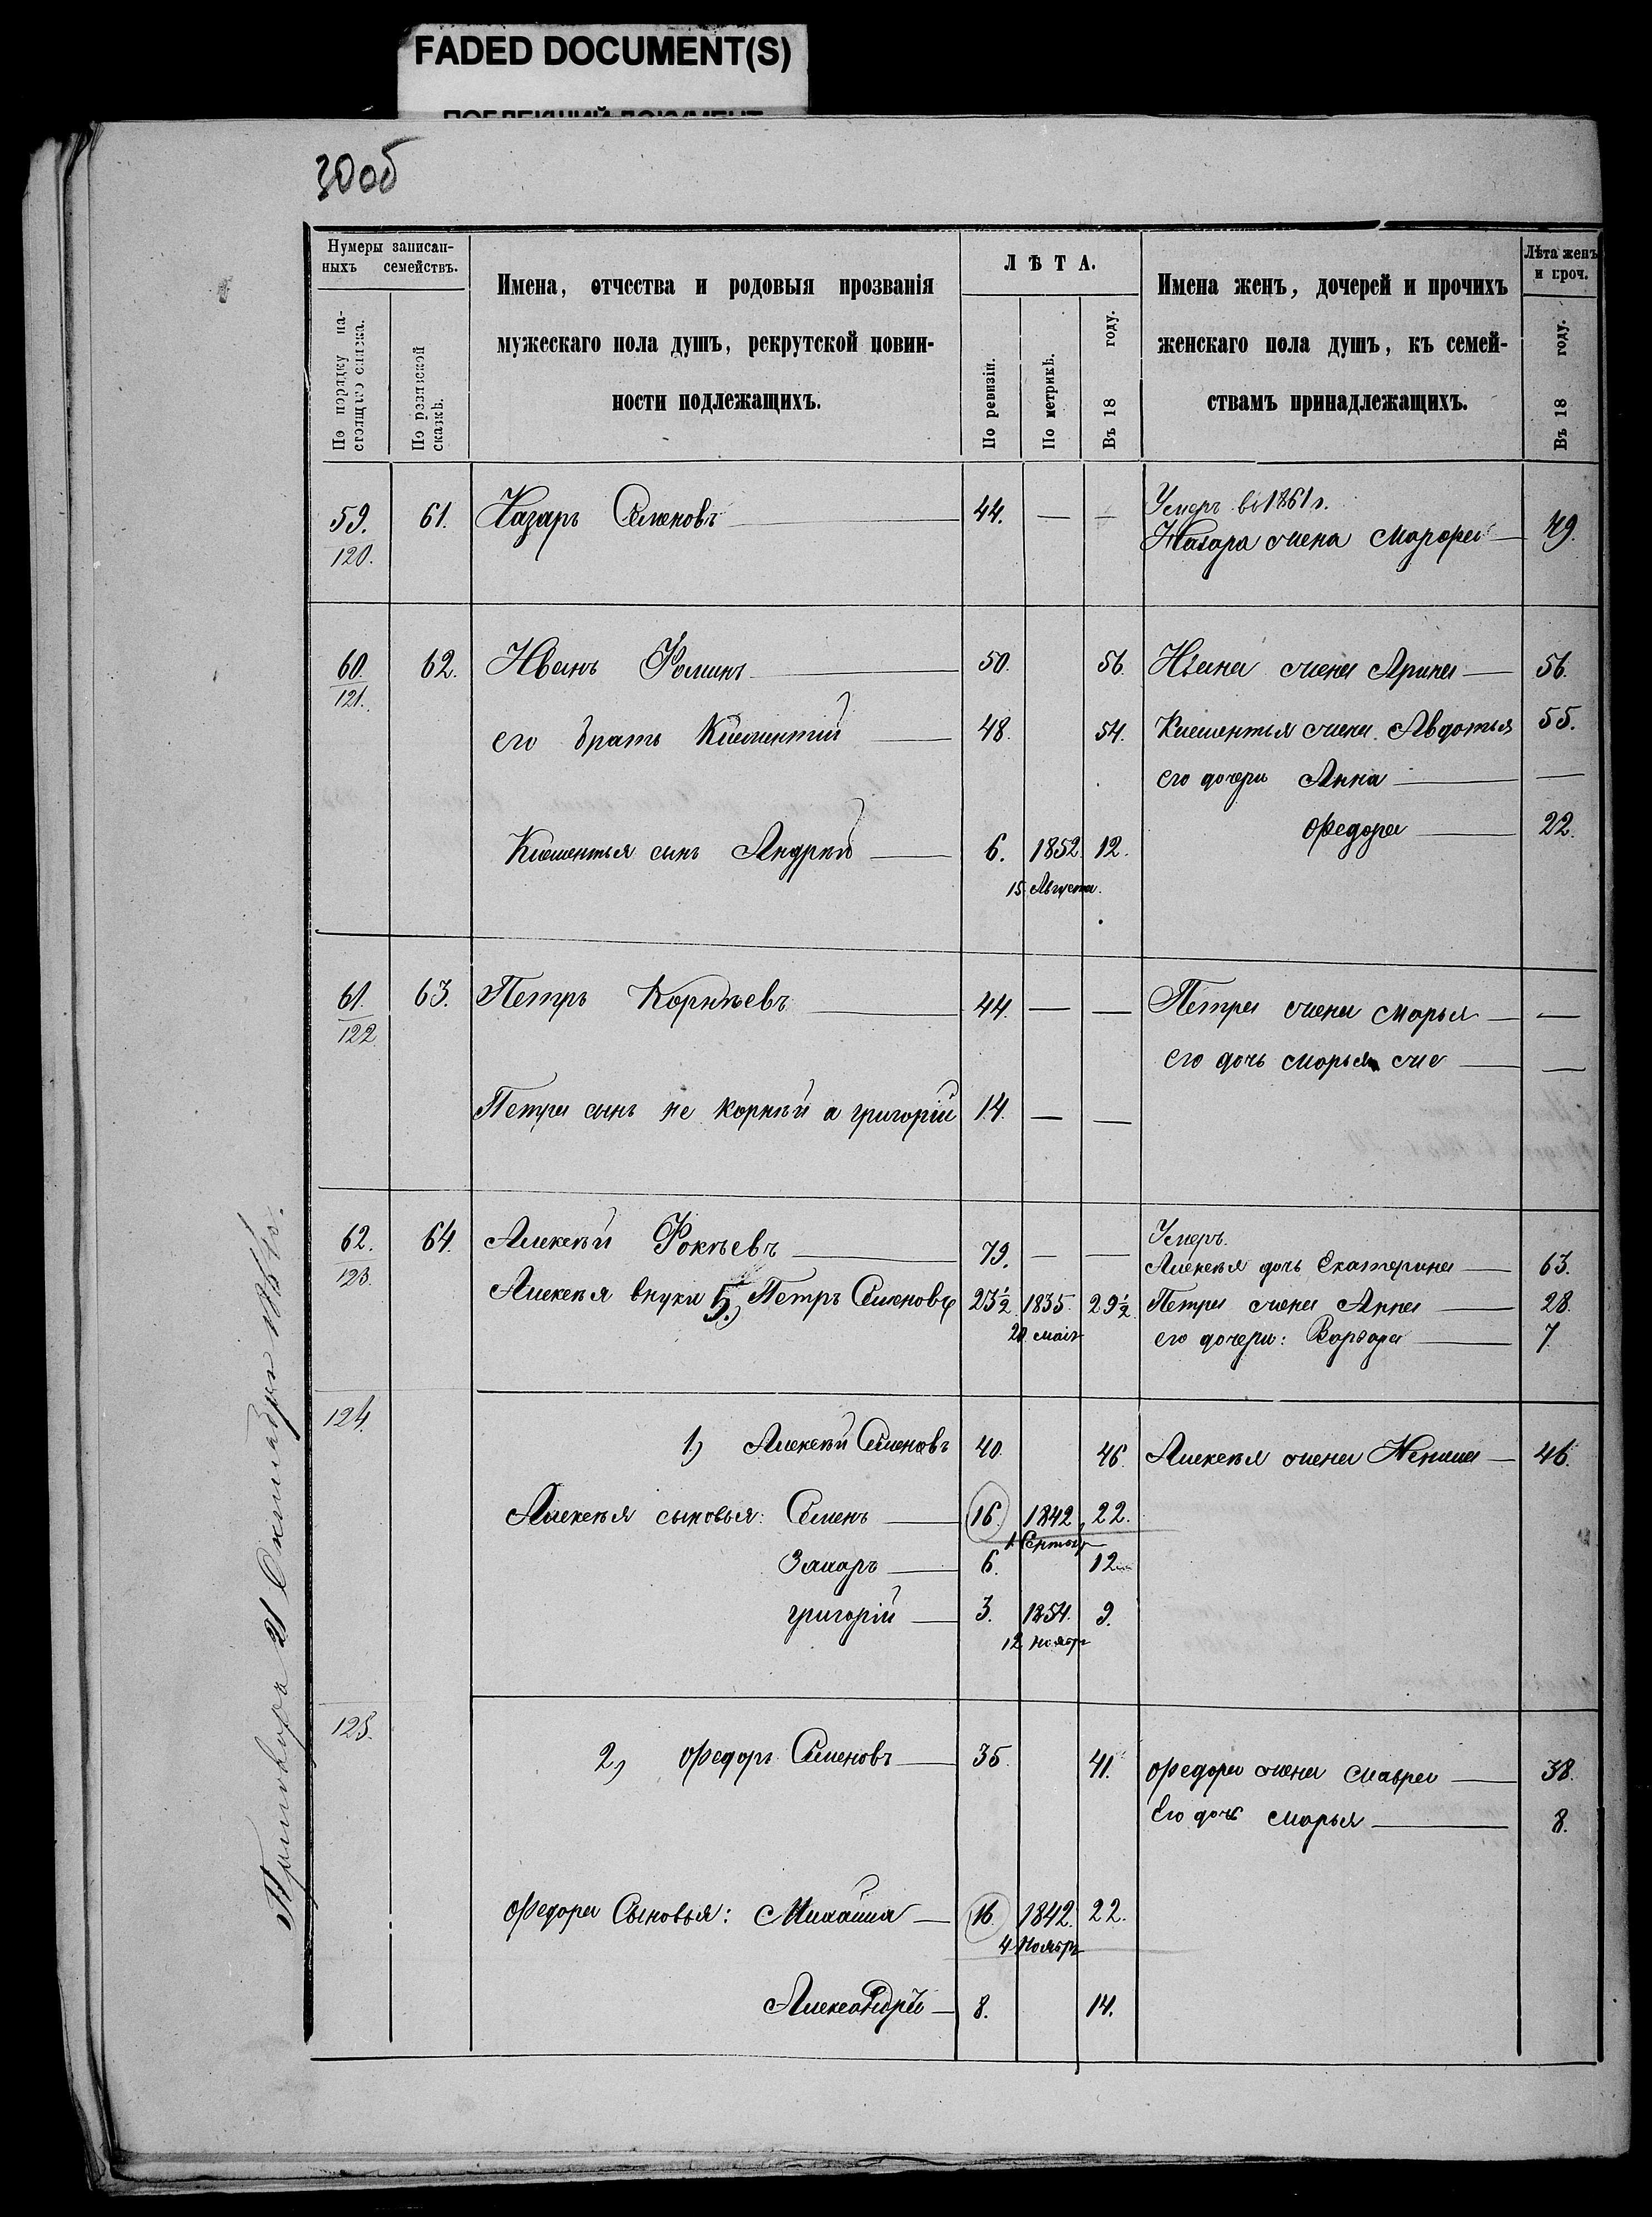 FADED DOCUMENT(S)
30об
Нумеры записан-
ныхъ семействъ.
По порядку на-
стоящаго списка.
По ревизской
сказкѣ.
Имена, отчества и родовыя прозванія
мужескаго пола душъ, рекрутской повин-
ности подлежащихъ.
ЛѢТА.
По ревизіи.
По метрикѣ.
Въ 18 году.
Имена женъ, дочерей и прочихъ
женскаго пола душъ, къ семей-
ствамъ принадлежащихъ.
Лѣта женъ
и проч.
Въ 18 году.
59. 61. Назаръ Семеновъ 44. — — Умеръ въ 1861 г.
120. Назара жена Марфа 49.
60. 62. Иванъ Фоминъ 50. 56. Ивана жена Арина 56.
121.
его братъ Климентій 48. 54. Климентья жена Авдотья 55.
его дочери Анна —
Федора 22.
Климентья сынъ Андрей 6. 1852. 12.
15 Августа.
61. 63. Петръ Корнѣевъ 44. — — Петра жена Марья —
122
его дочь Марья же —
Петра сынъ не Корнѣй а Григорій 14. — —
62. 64. Алексѣй Фокѣевъ 79. — — Умеръ.
123. Алексѣя дочь Екатерина 63.
Алексѣя внуки 5, Петръ Семеновъ 23½ 1835. 29½ Петра жена Анна 28.
20 маія его дочери: Варвара 7.
124.
1, Алексѣй Семеновъ 40. 46. Алексѣя жена 46.
Алексѣя сыновья: Семенъ 16. 1842 22.
1 Сентяб
Захаръ 6. 12
Григорій 3. 1854. 9.
12 Ноябр
125.
2, Федоръ Семеновъ 35. 41. Федора жена Мавра 38.
Его дочь Марья 8.
Федора Сыновья: Михайла 16. 1842. 22.
4 Ноябр
Александръ 8. 14.
21 Октября